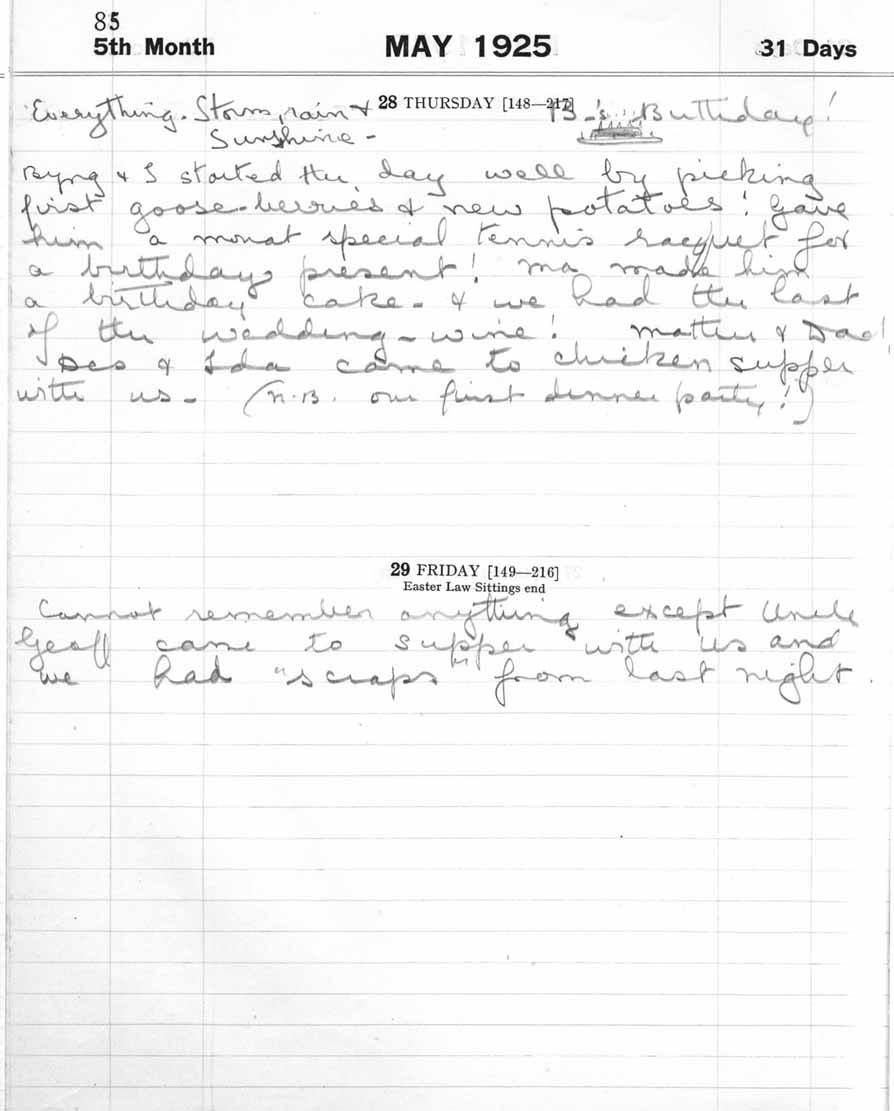 85
5th Month MAY 1925 31 Days
28 THURSDAY [148—217]
Everything. Storm, rain & B-'s Birthday!
Sunshine -
Byng & I started the day well by picking
first goose-berries & new potatoes! Gave
him a special tennis racquet for
a birthday present! Ma made him
a birthday cake - & we had the last
of the wedding-wine! & Dad!
Des & Ida came to chicken supper
with us - (N.B. our first dinner party!)
29 FRIDAY [149—216]
Easter Law Sittings end
Cannot remember anything except Uncle
Geoff came to supper with us and
we had "scraps" from last night.